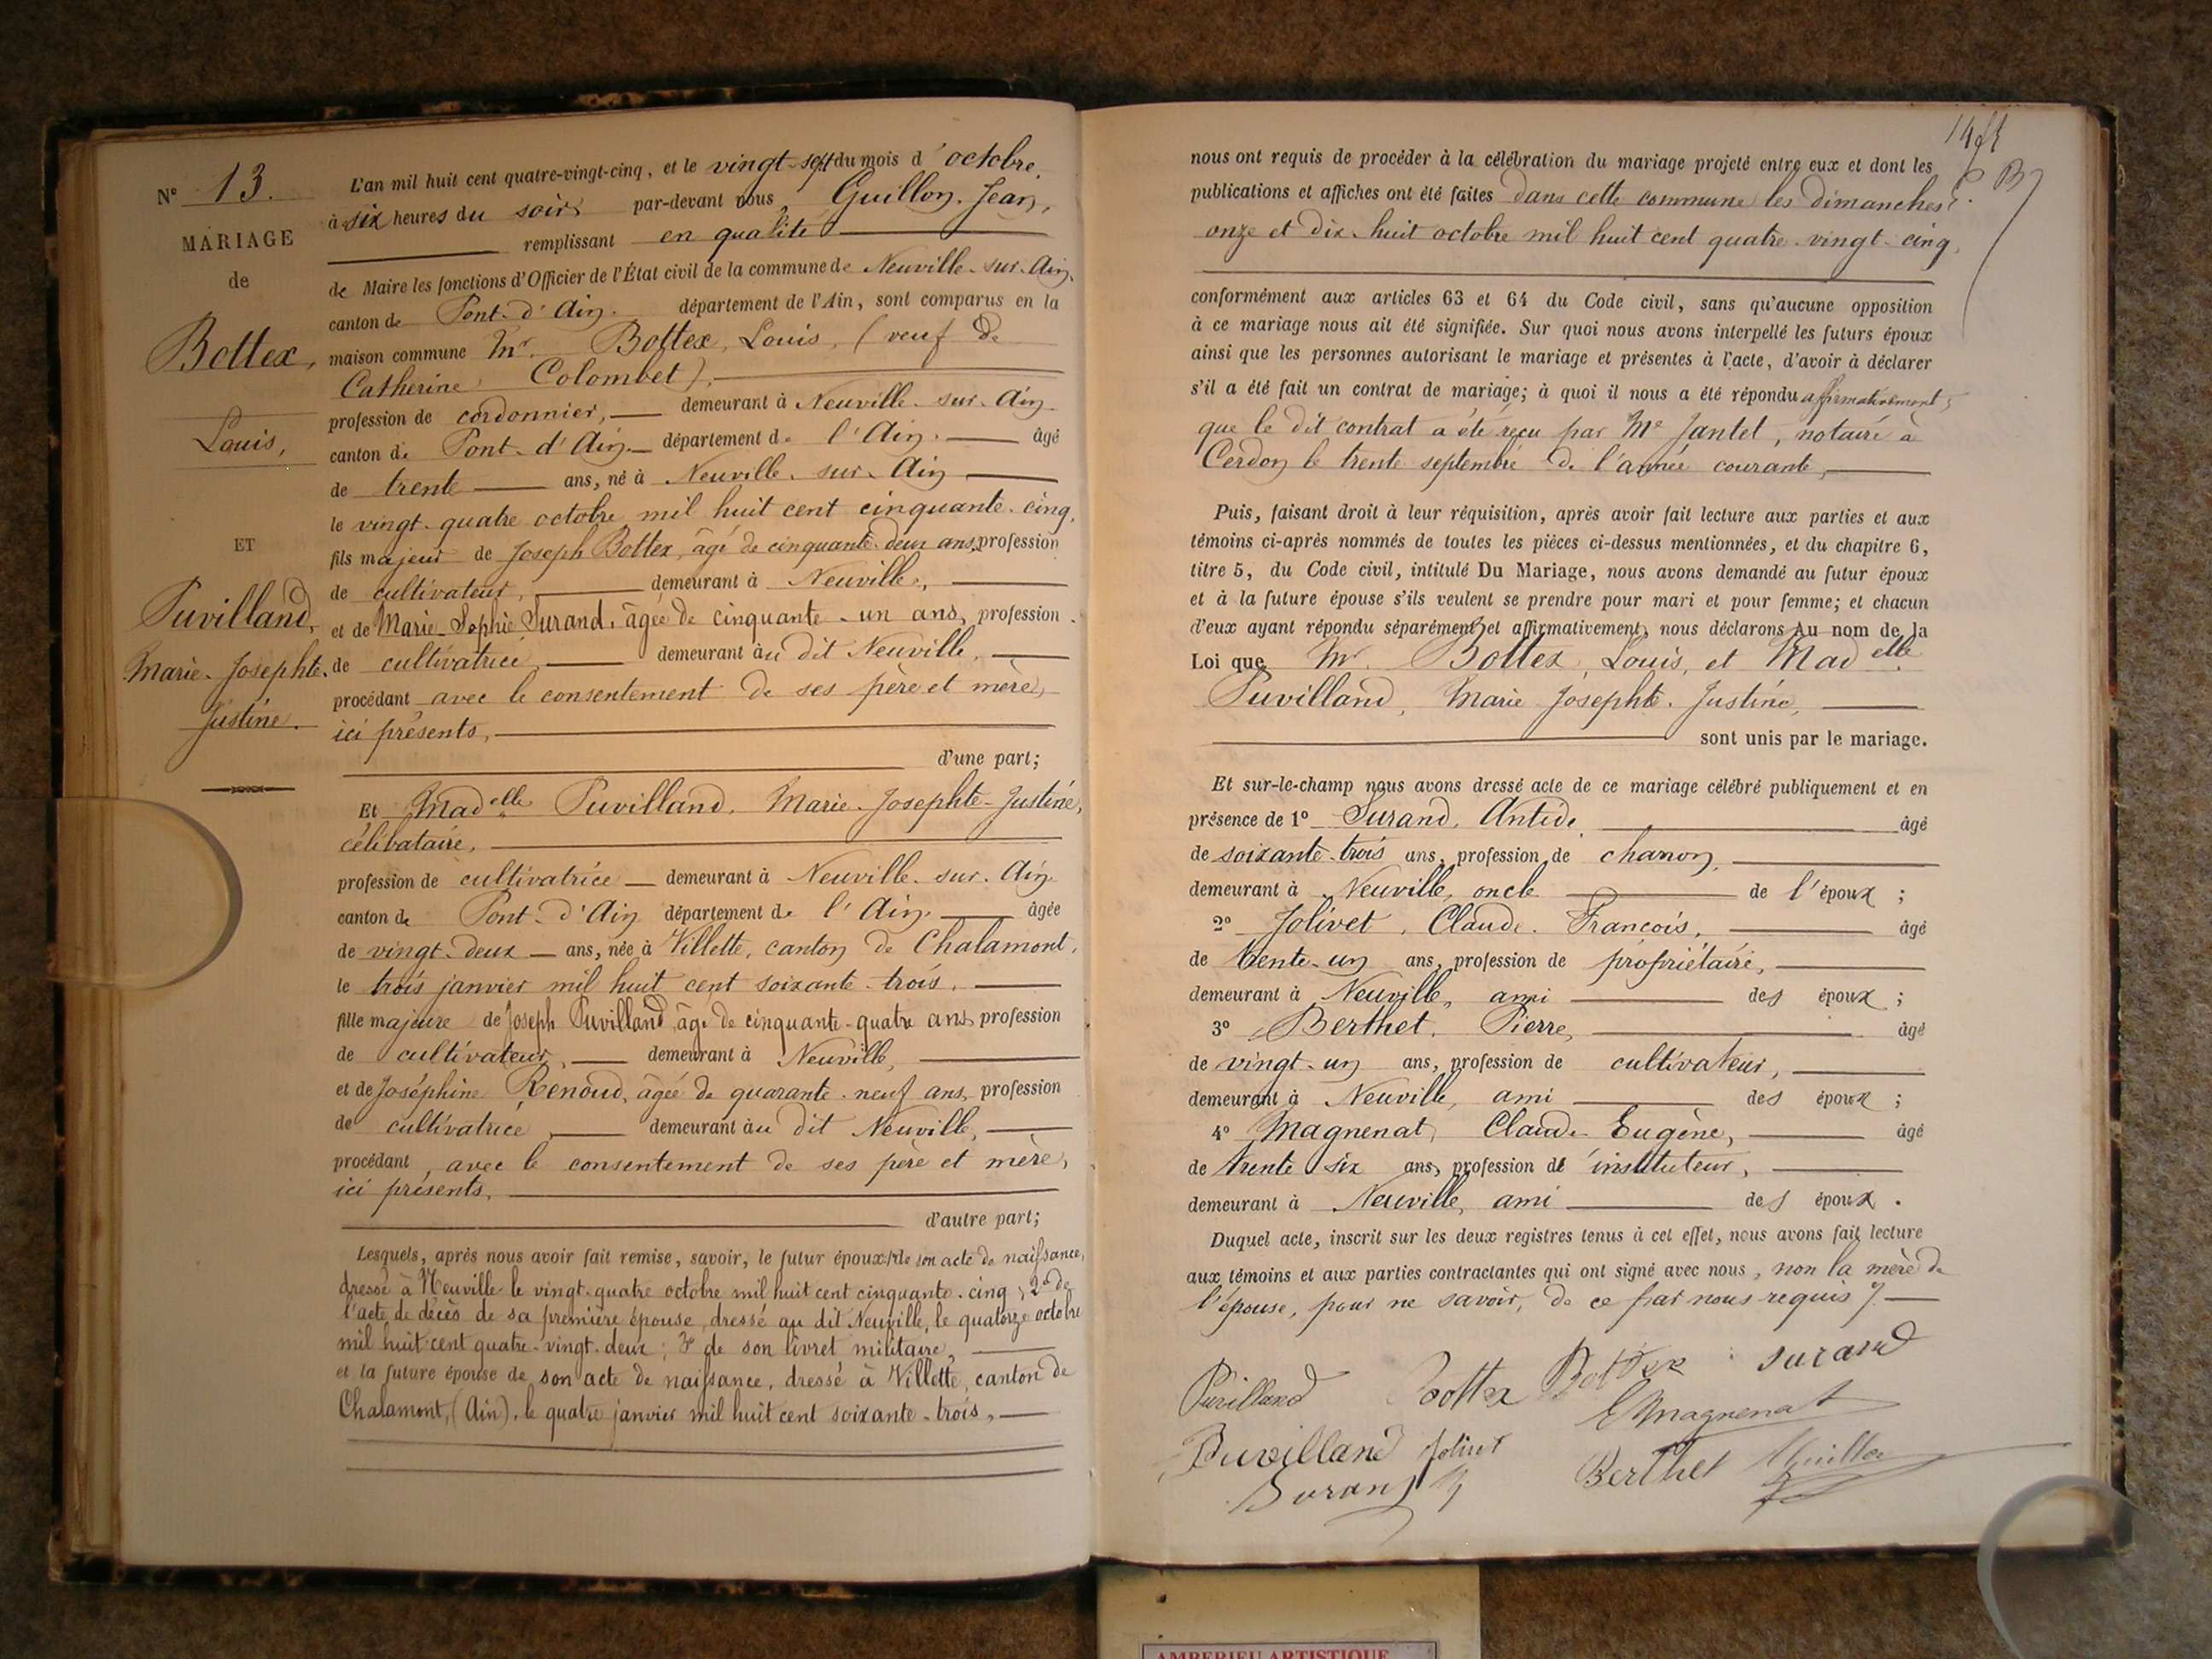 N° 13.
MARIAGE
de
Bottex,
Louis,
ET
Puvilland,
Marie-Josephte.
Justine.
L'an mil huit cent quatre-vingt-cinq, et le vingt-sept du mois d'octobre,
à six heures du soir par-devant nous Guillon, Jean,
remplissant en qualité
de Maire les fonctions d'Officier de l'État civil de la commune de Neuville-sur-Ain,
canton de Pont-d'Ain. département de l'Ain, sont comparus en la
maison commune Mr. Bottex, Louis, (veuf de
Catherine Colombet),
profession de cordonnier, demeurant à Neuville-sur-Ain
canton de Pont-d'Ain département de l'Ain. âgé
de trente ans, né à Neuville-sur-Ain
le vingt-quatre octobre mil huit cent cinquante-cinq,
fils majeur de Joseph Bottex, âgé de cinquante-deux ans, profession
de cultivateur, demeurant à Neuville,
et de Marie-Sophie Surand, âgée de cinquante-un ans, profession
de cultivatrice, demeurant au dit Neuville,
procédant avec le consentement de ses père et mère,
ici présents,
d'une part;
Et Madelle Puvilland, Marie-Josephte-Justine,
célibataire,
profession de cultivatrice demeurant à Neuville-sur-Ain
canton de Pont-d'Ain département de l'Ain. âgée
de vingt-deux ans, née à Villette, canton de Chalamont,
le trois janvier mil huit cent soixante-trois,
fille majeure de Joseph Puvilland, âgé de cinquante-quatre ans, profession
de cultivateur, demeurant à Neuville,
et de Joséphine Renoud, âgée de quarante-neuf ans, profession
de cultivatrice, demeurant au dit Neuville,
procédant, avec le consentement de ses père et mère,
ici présents,
d'autre part;
Lesquels, après nous avoir fait remise, savoir, le futur époux: 1° de son acte de naissance,
dressé à Neuville le vingt-quatre octobre mil huit cent cinquante-cinq; 2° de
l'acte de décès de sa première épouse, dressé au dit Neuville, le quatorze octobre
mil huit cent quatre-vingt-deux; 3° de son livret militaire,
et la future épouse de son acte de naissance, dressé à Villette, canton de
Chalamont, (Ain), le quatre janvier mil huit cent soixante-trois,
nous ont requis de procéder à la célébration du mariage projeté entre eux et dont les
publications et affiches ont été faites dans cette commune les dimanches
onze et dix-huit octobre mil huit cent quatre-vingt-cinq,
conformément aux articles 63 et 64 du Code civil, sans qu'aucune opposition
à ce mariage nous ait été signifiée. Sur quoi nous avons interpellé les futurs époux
ainsi que les personnes autorisant le mariage et présentes à l'acte, d'avoir à déclarer
s'il a été fait un contrat de mariage; à quoi il nous a été répondu affirmativement,
que le dit contrat a été reçu par Me Jantet, notaire à
Cerdon le trente septembre de l'année courante,
Puis, faisant droit à leur réquisition, après avoir fait lecture aux parties et aux
témoins ci-après nommés de toutes les pièces ci-dessus mentionnées, et du chapitre 6,
titre 5, du Code civil, intitulé Du Mariage, nous avons demandé au futur époux
et à la future épouse s'ils veulent se prendre pour mari et pour femme; et chacun
d'eux ayant répondu séparément et affirmativement, nous déclarons Au nom de la
Loi que Mr. Bottex, Louis, et Madelle
Puvilland, Marie Josephte-Justine,
sont unis par le mariage.
Et sur-le-champ nous avons dressé acte de ce mariage célébré publiquement et en
présence de 1° Surand, Antide, âgé
de soixante-trois ans, profession de charron,
demeurant à Neuville, oncle de l'époux;
2° Jolivet, Claude-François, âgé
de trente-un ans, profession de propriétaire,
demeurant à Neuville, ami des époux;
3° Berthet, Pierre, âgé
de vingt-un ans, profession de cultivateur,
demeurant à Neuville, ami des époux;
4° Magnenat, Claude-Eugène, âgé
de trente-six ans, profession de instituteur,
demeurant à Neuville, ami des époux.
Duquel acte, inscrit sur les deux registres tenus à cet effet, nous avons fait lecture
aux témoins et aux parties contractantes qui ont signé avec nous, non la mère de
l'épouse, pour ne savoir, de ce par nous requis.
Puvilland Bottex Bottex Surand
E Magnenat
Puvilland Jolivet
Berthet Guillon
Surand
AMBERIEU ARTISTIQUE